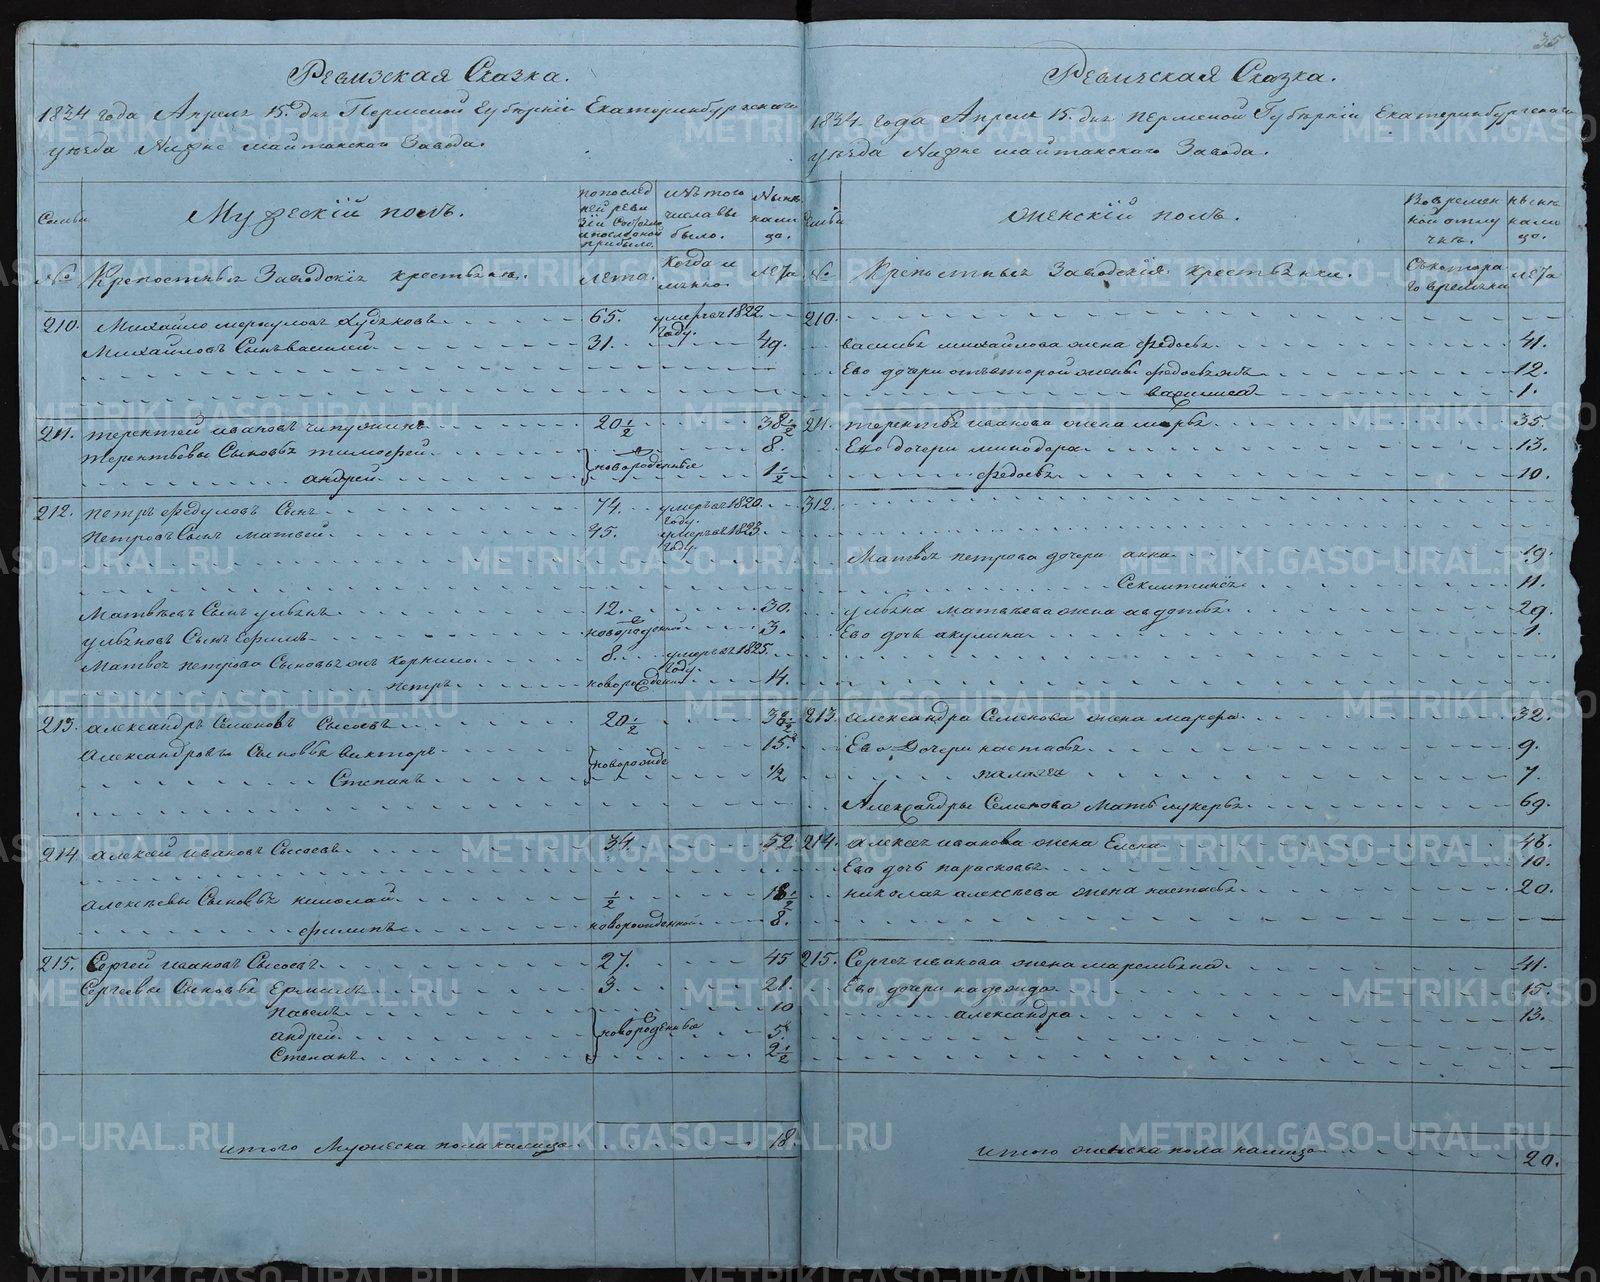 35
Ревизская Сказка.
1834 года Апреля 15. дня Пермской Губернiи Екатеринбургскаго
уезда Нижне шайтанскаго Завода.
Семьи
Мужескiй полъ.
по послед
ней реви
зiи Состояло
и после оной
прибыло.
изъ того
числа вы
было.
Ныне
на ли
цо.
№
Крепостныя Заводскiя крестьяне.
лета.
Когда и
менно.
лета
210. Михайло меркуловъ Худяковъ 65. умерълъ 1822 году.
Михайловъ Сынъ василей 31. 49.
211. терентей ивановъ чипуштинъ 20 1/2 38 1/2
терентьевы Сыновья тимофей 8.
новорожденные
андрей 1 1/2
212. петръ федуловъ Сынъ 74. умерълъ 1820. году.
петровъ Сынъ матвей 45. умерълъ 1823. году.
Матвеевъ Сынъ ульянъ 12. 30.
ульяновъ Сынъ Ефимъ новорожденной 3.
Матвея петрова Сыновья корнило 8. умерълъ 1825 году.
петръ новорожденной 14.
213. александръ Семеновъ Сысоевъ 20 1/2 38 1/2
александровы Сыновья викторъ 15.
новорожде
Степанъ 1/2
214. алексей ивановъ Сысоевъ 34. 52.
алексеевы Сыновья николай 1/2 18 1/2
филипъ новорожденной 8.
215. Сергей ивановъ Сысоевъ 27. 45
Сергеевы Сыновья Ермилъ 3. 21.
павелъ 10
новорожденные
андрей 5
Степанъ 2 1/2
итого Мужеска пола налицо 18.
Ревизская Сказка.
1834 года Апреля 15. дня пермской Губернiи Екатеринбургскаго
уезда Нижне шайтанскаго Завода.
Семьи
женскiй полъ.
Во времен
ной отлу
чке.
ныне
нали
цо.
№
Крепостныя Заводскiя крестьянки.
Съ котора
го времени
лета
210.
василья михайлова жена федосья 41.
Ево дочери отъ второй жены федосья 12.
василиса 1.
211. терентья иванова жена марья 35.
Ево дочери минодора 13.
федосья 10.
312.
Матвея петрова дочери анна 19.
Секлитинея 11.
ульяна матвеева жена авдотья 29.
Ево дочь акулина 1.
213. александра Семенова жена марфа 32.
Ево Дочери настасья 9.
палагея 7.
Александры Семенова Мать лукерья 69.
214. алексея иванова жена Елена 46.
Ево дочь парасковья 10.
николая алексеева жена настасья 20.
215. Сергея иванова жена маремьяна 41.
Ево дочери надежда 15
александра 13.
итого женска пола налицо 20.
METRIKI.GASO-URAL.RU